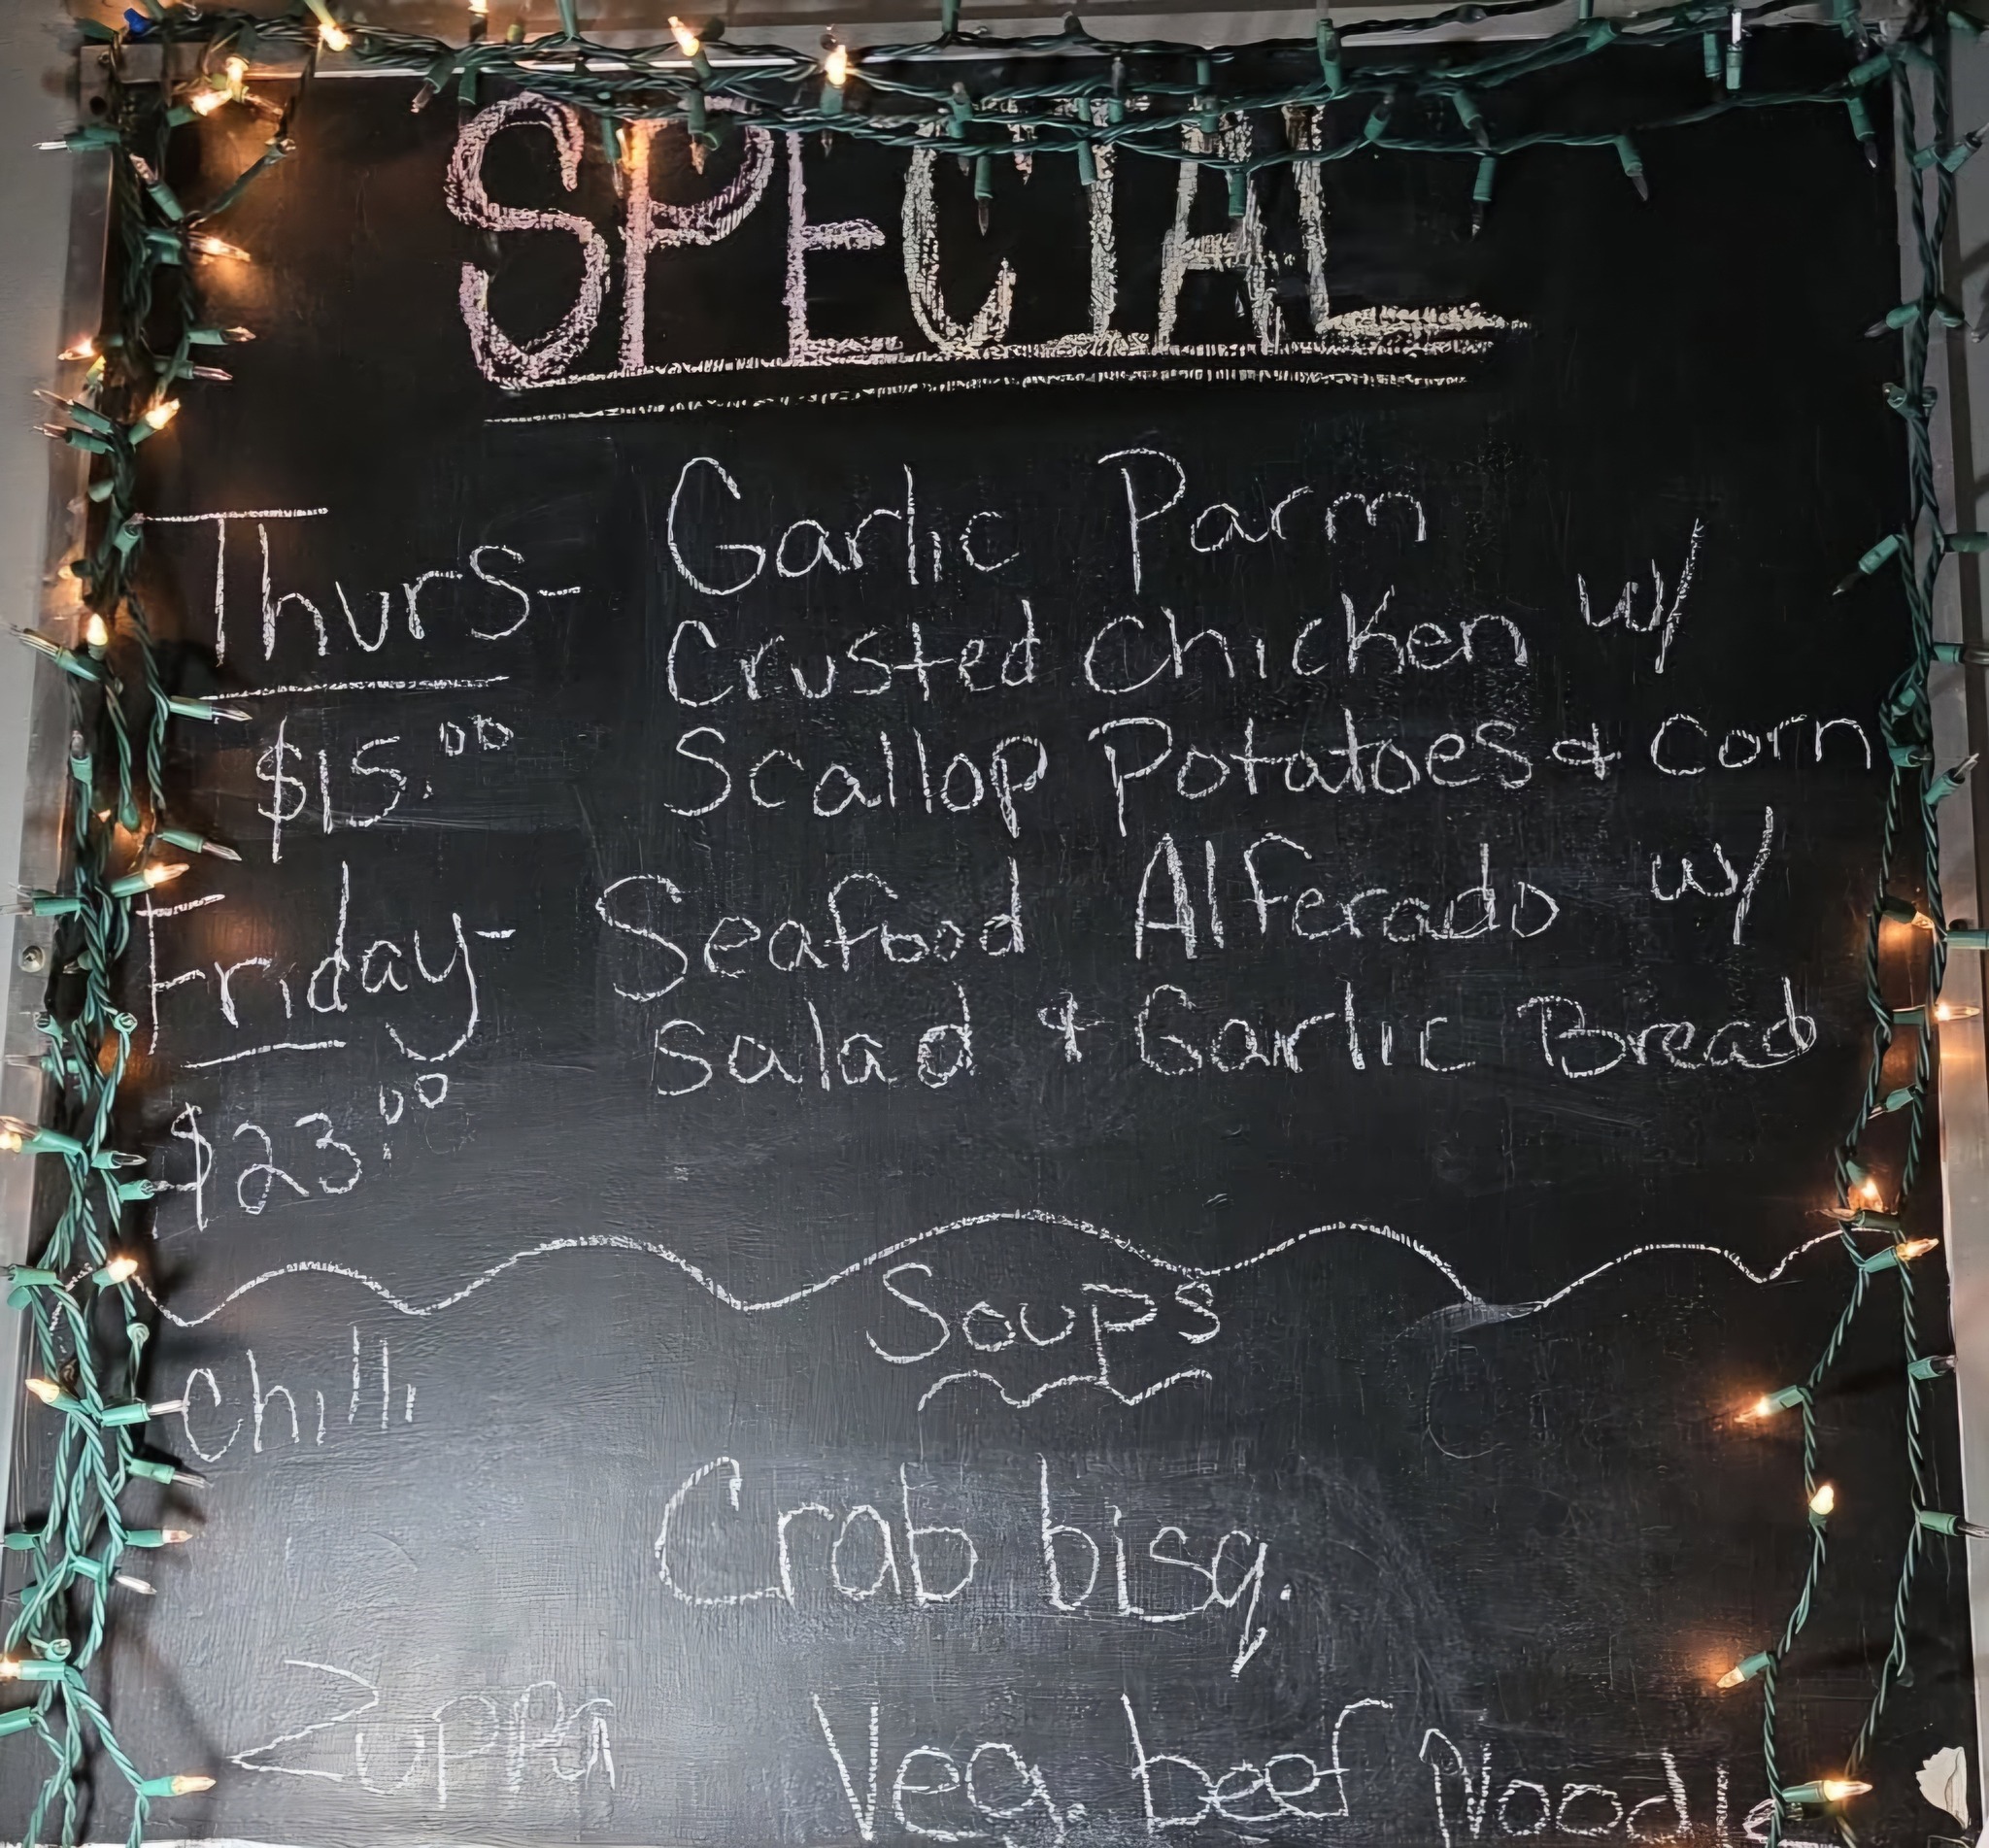 SPECIAL
Thurs- Garlic Parm
Crusted Chicken w/
$15.00 Scallop Potatoes & Corn
Friday- Seafood Alferado w/
Salad & Garlic Bread
$23.00
Soups
Chilli
Crab bisq.
Zuppa Veg. beef Noodle